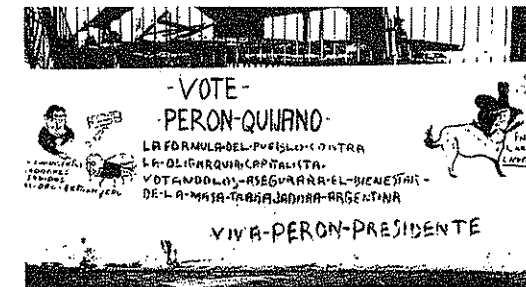 -VOTE-
-PERON-QUIJANO-
LA FORMULA-DEL-PUEBLO-CONTRA
LA-OLIGARQUIA-CAPITALISTA.
VOTANDOLOS-ASEGURARA-EL-BIENESTAR-
DE-LA-MASA-TRABAJADORA-ARGENTINA
VIVA-PERON-PRESIDENTE